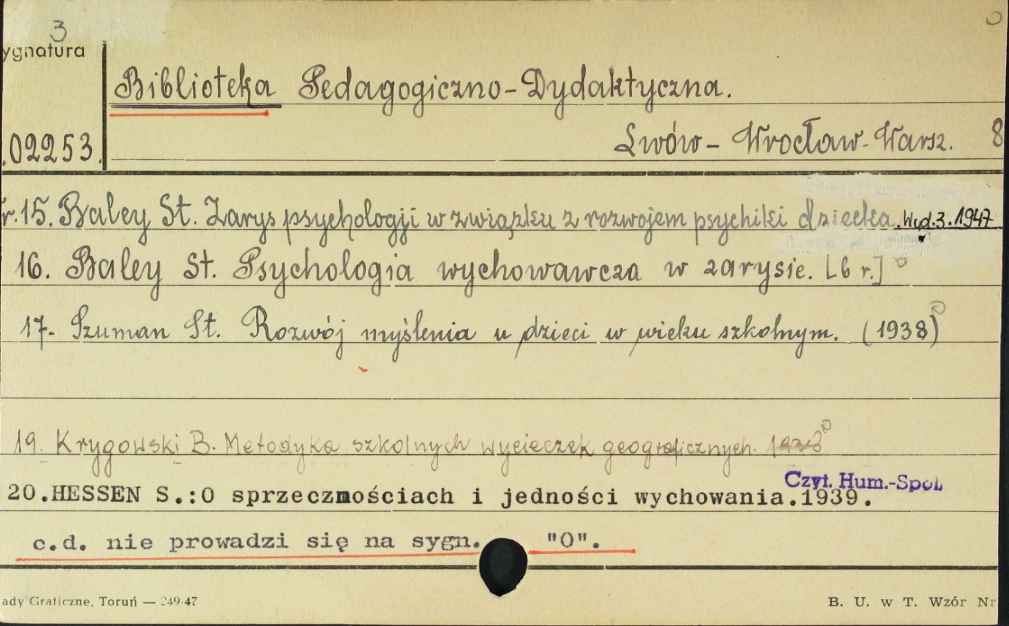 3
ygnatura
Biblioteka Pedagogiczno-Dydaktyczna.
.02253.
Lwów- Wrocław-Warsz. 8
r.15. Baley St. Zarys psychologji w związku z rozwojem psychiki dziecka. Wyd.3.1947
16. Baley St. Psychologia wychowawcza w zarysie. [6 r.]
17. Szuman St. Rozwój myślenia u dzieci w wieku szkolnym. (1938)
19. Krygowski B. Metodyka szkolnych wycieczek geograficznych. 1938
20.HESSEN S.:O sprzecznościach i jedności wychowania.1939.
Czyt. Hum.-Społ.
c.d. nie prowadzi się na sygn. "O".
ady Graficzne, Toruń — 249/47
B. U. w T. Wzór Nr